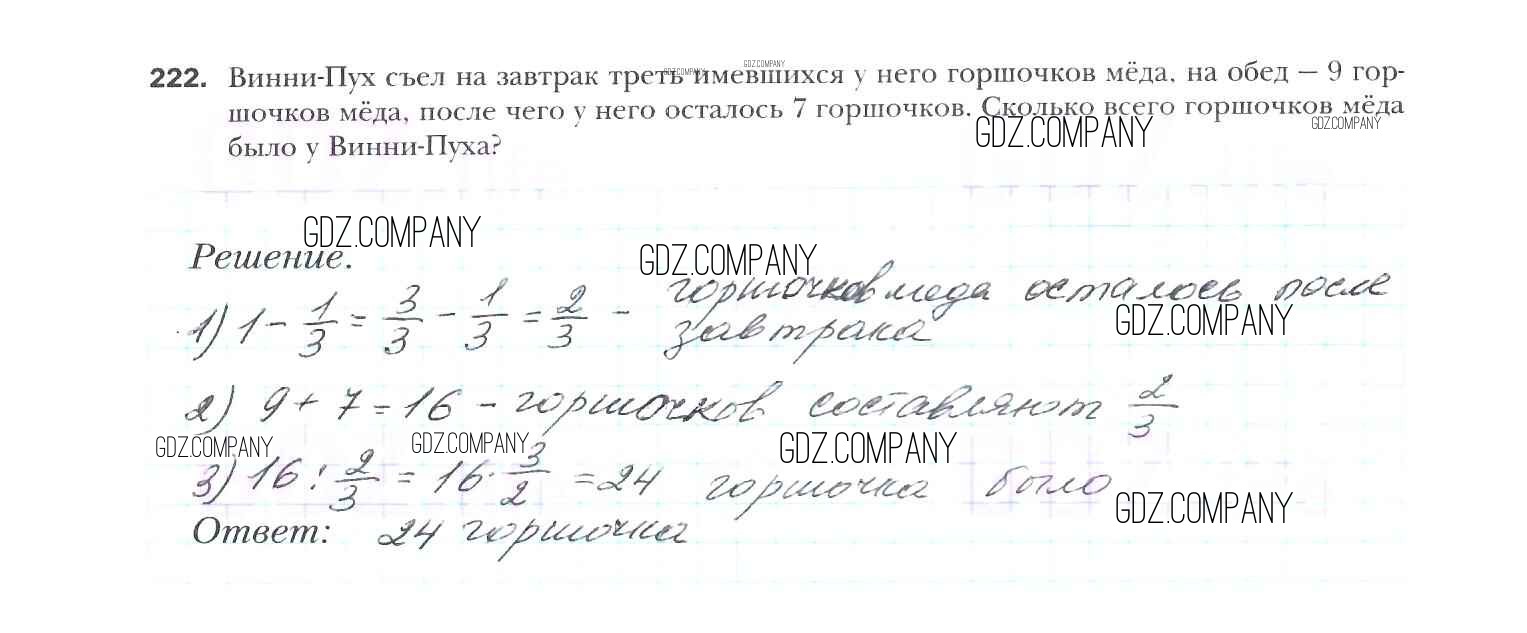 222. Винни-Пух съел на завтрак треть имевшихся у него горшочков мёда, на обед – 9 гор-
шочков мёда, после чего у него осталось 7 горшочков. Сколько всего горшочков мёда
было у Винни-Пуха?
GDZ.COMPANY
GDZ.COMPANY
GDZ.COMPANY
GDZ.COMPANY
GDZ.COMPANY
Решение.
GDZ.COMPANY
1) 1 - 1/3 = 3/3 - 1/3 = 2/3 - горшочков меда осталось после
завтрака
GDZ.COMPANY
2) 9 + 7 = 16 - горшочков составляют 2/3
GDZ.COMPANY
GDZ.COMPANY
GDZ.COMPANY
3) 16 : 2/3 = 16 · 3/2 = 24 горшочка было
GDZ.COMPANY
Ответ: 24 горшочка